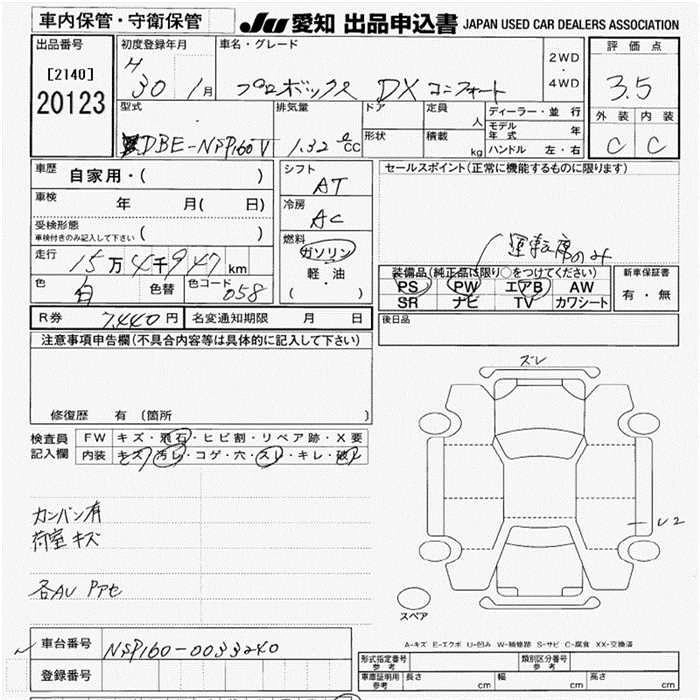 車内保管・守衛保管
JU 愛知 出品申込書 JAPAN USED CAR DEALERS ASSOCIATION
出品番号
[2140]
20123
初度登録年月
H
30 1月
車名・グレード
プロボックス DX コンフォート
2WD
・
4WD
評価点
3.5
外装 内装
C C
型式
DBE-NSP160V
排気量
1.32 ℓ CC
ドア
形状
定員 人
積載 kg
ディーラー・並行
モデル年式 年
ハンドル 左・右
車歴
自家用・( )
車検
年 月( 日)
受検形態
車検付きのみ記入して下さい ( )
走行
15万4千947km
色 白 色替 色コード 058
シフト
AT
冷房
AC
燃料
ガソリン
軽・油
( ・ )
セールスポイント(正常に機能するものに限ります)
運転席のみ
装備品(純正品に限り○をつけてください)
PS PW エアB AW
SR ナビ TV カワシート
新車保証書
有・無
R券 7,440円 名変通知期限 月 日
後日品
注意事項申告欄(不具合内容等は具体的に記入して下さい)
修復歴 有 (箇所 )
検査員記入欄
FW キズ・飛石・ヒビ割・リペア跡・X要
内装 キズ・汚レ・コゲ・穴・スレ・キレ・破レ
カンバン有
荷室キズ
各AU Pアセ
ズレ
U2
スペア
A-キズ E-エクボ U-凹み W-補修跡 S-サビ C-腐食 XX-交換済
車台番号 NSP160-0033240
登録番号
形式指定番号 参考
類別区分番号 参考
車庫証明用 参考 長さ cm 幅 cm 高さ cm